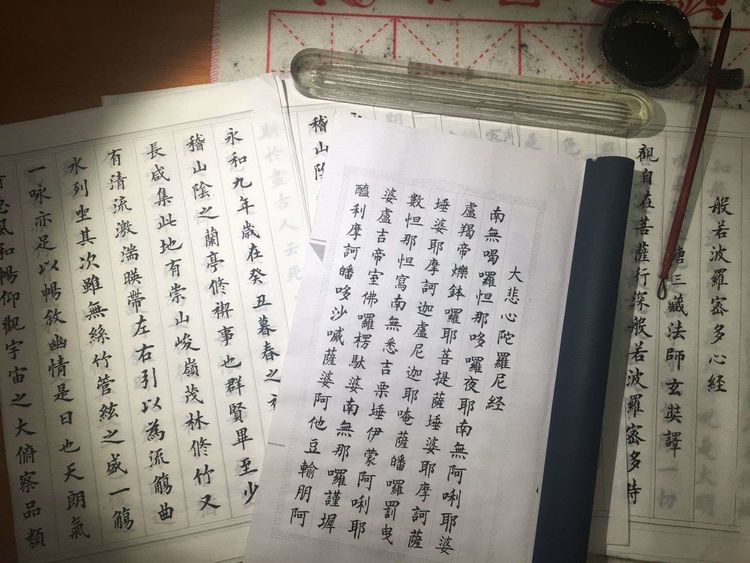 般若波羅密多心經
唐三藏法師玄奘譯
觀自在菩薩行深般若波羅密多時
大悲心陀羅尼經
南無喝囉怛那哆囉夜耶南無阿唎耶婆
盧羯帝爍鉢囉耶菩提薩埵婆耶摩訶薩
埵婆耶摩訶迦盧尼迦耶唵薩皤囉罰曳
數怛那怛寫南無悉吉栗埵伊蒙阿唎耶
婆盧吉帝室佛囉楞馱婆南無那囉謹墀
醯利摩訶皤哆沙咩薩婆阿他豆輸朋阿
稽山陰
期於盡古人云死
永和九年歲在癸丑暮春之
稽山陰之蘭亭修禊事也群賢畢至少
長咸集此地有崇山峻嶺茂林修竹又
有清流激湍暎帶左右引以為流觴曲
水列坐其次雖無絲竹管絃之盛一觴
一咏亦足以暢敘幽情是日也天朗氣
惠風和暢仰觀宇宙之大俯察品類